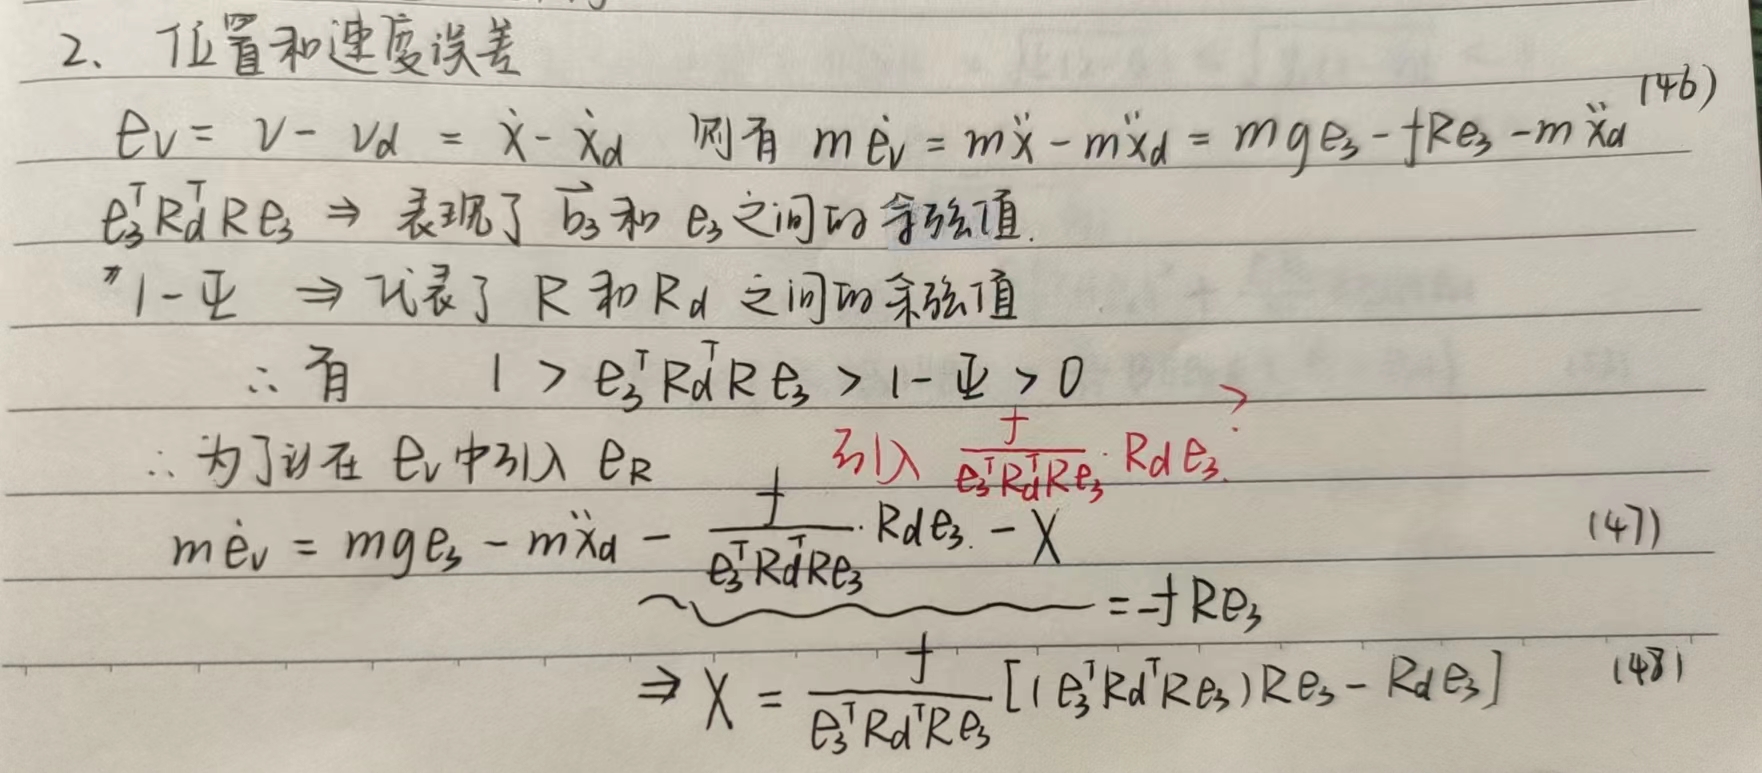 2、位置和速度误差
e_v = v - v_d = ẋ - ẋ_d 则有 m ė_v = mẍ - mẍ_d = mge₃ - fRe₃ - mẍ_d (46)
e₃ᵀR_dᵀRe₃ ⇒ 表现了 b⃗₃ 和 e₃ 之间的余弦值.
1-Ψ ⇒ 代表了 R 和 R_d 之间的余弦值
∴ 有 1 > e₃ᵀR_dᵀRe₃ > 1-Ψ > 0
∴ 为了在 e_v 中引入 e_R 引入 f/(e₃ᵀR_dᵀRe₃) · R_d e₃ ?
m ė_v = mge₃ - mẍ_d - f/(e₃ᵀR_dᵀRe₃) · R_d e₃ - X (47)
= -fRe₃
⇒ X = f/(e₃ᵀR_dᵀRe₃) [(e₃ᵀR_dᵀRe₃)Re₃ - R_d e₃] (48)